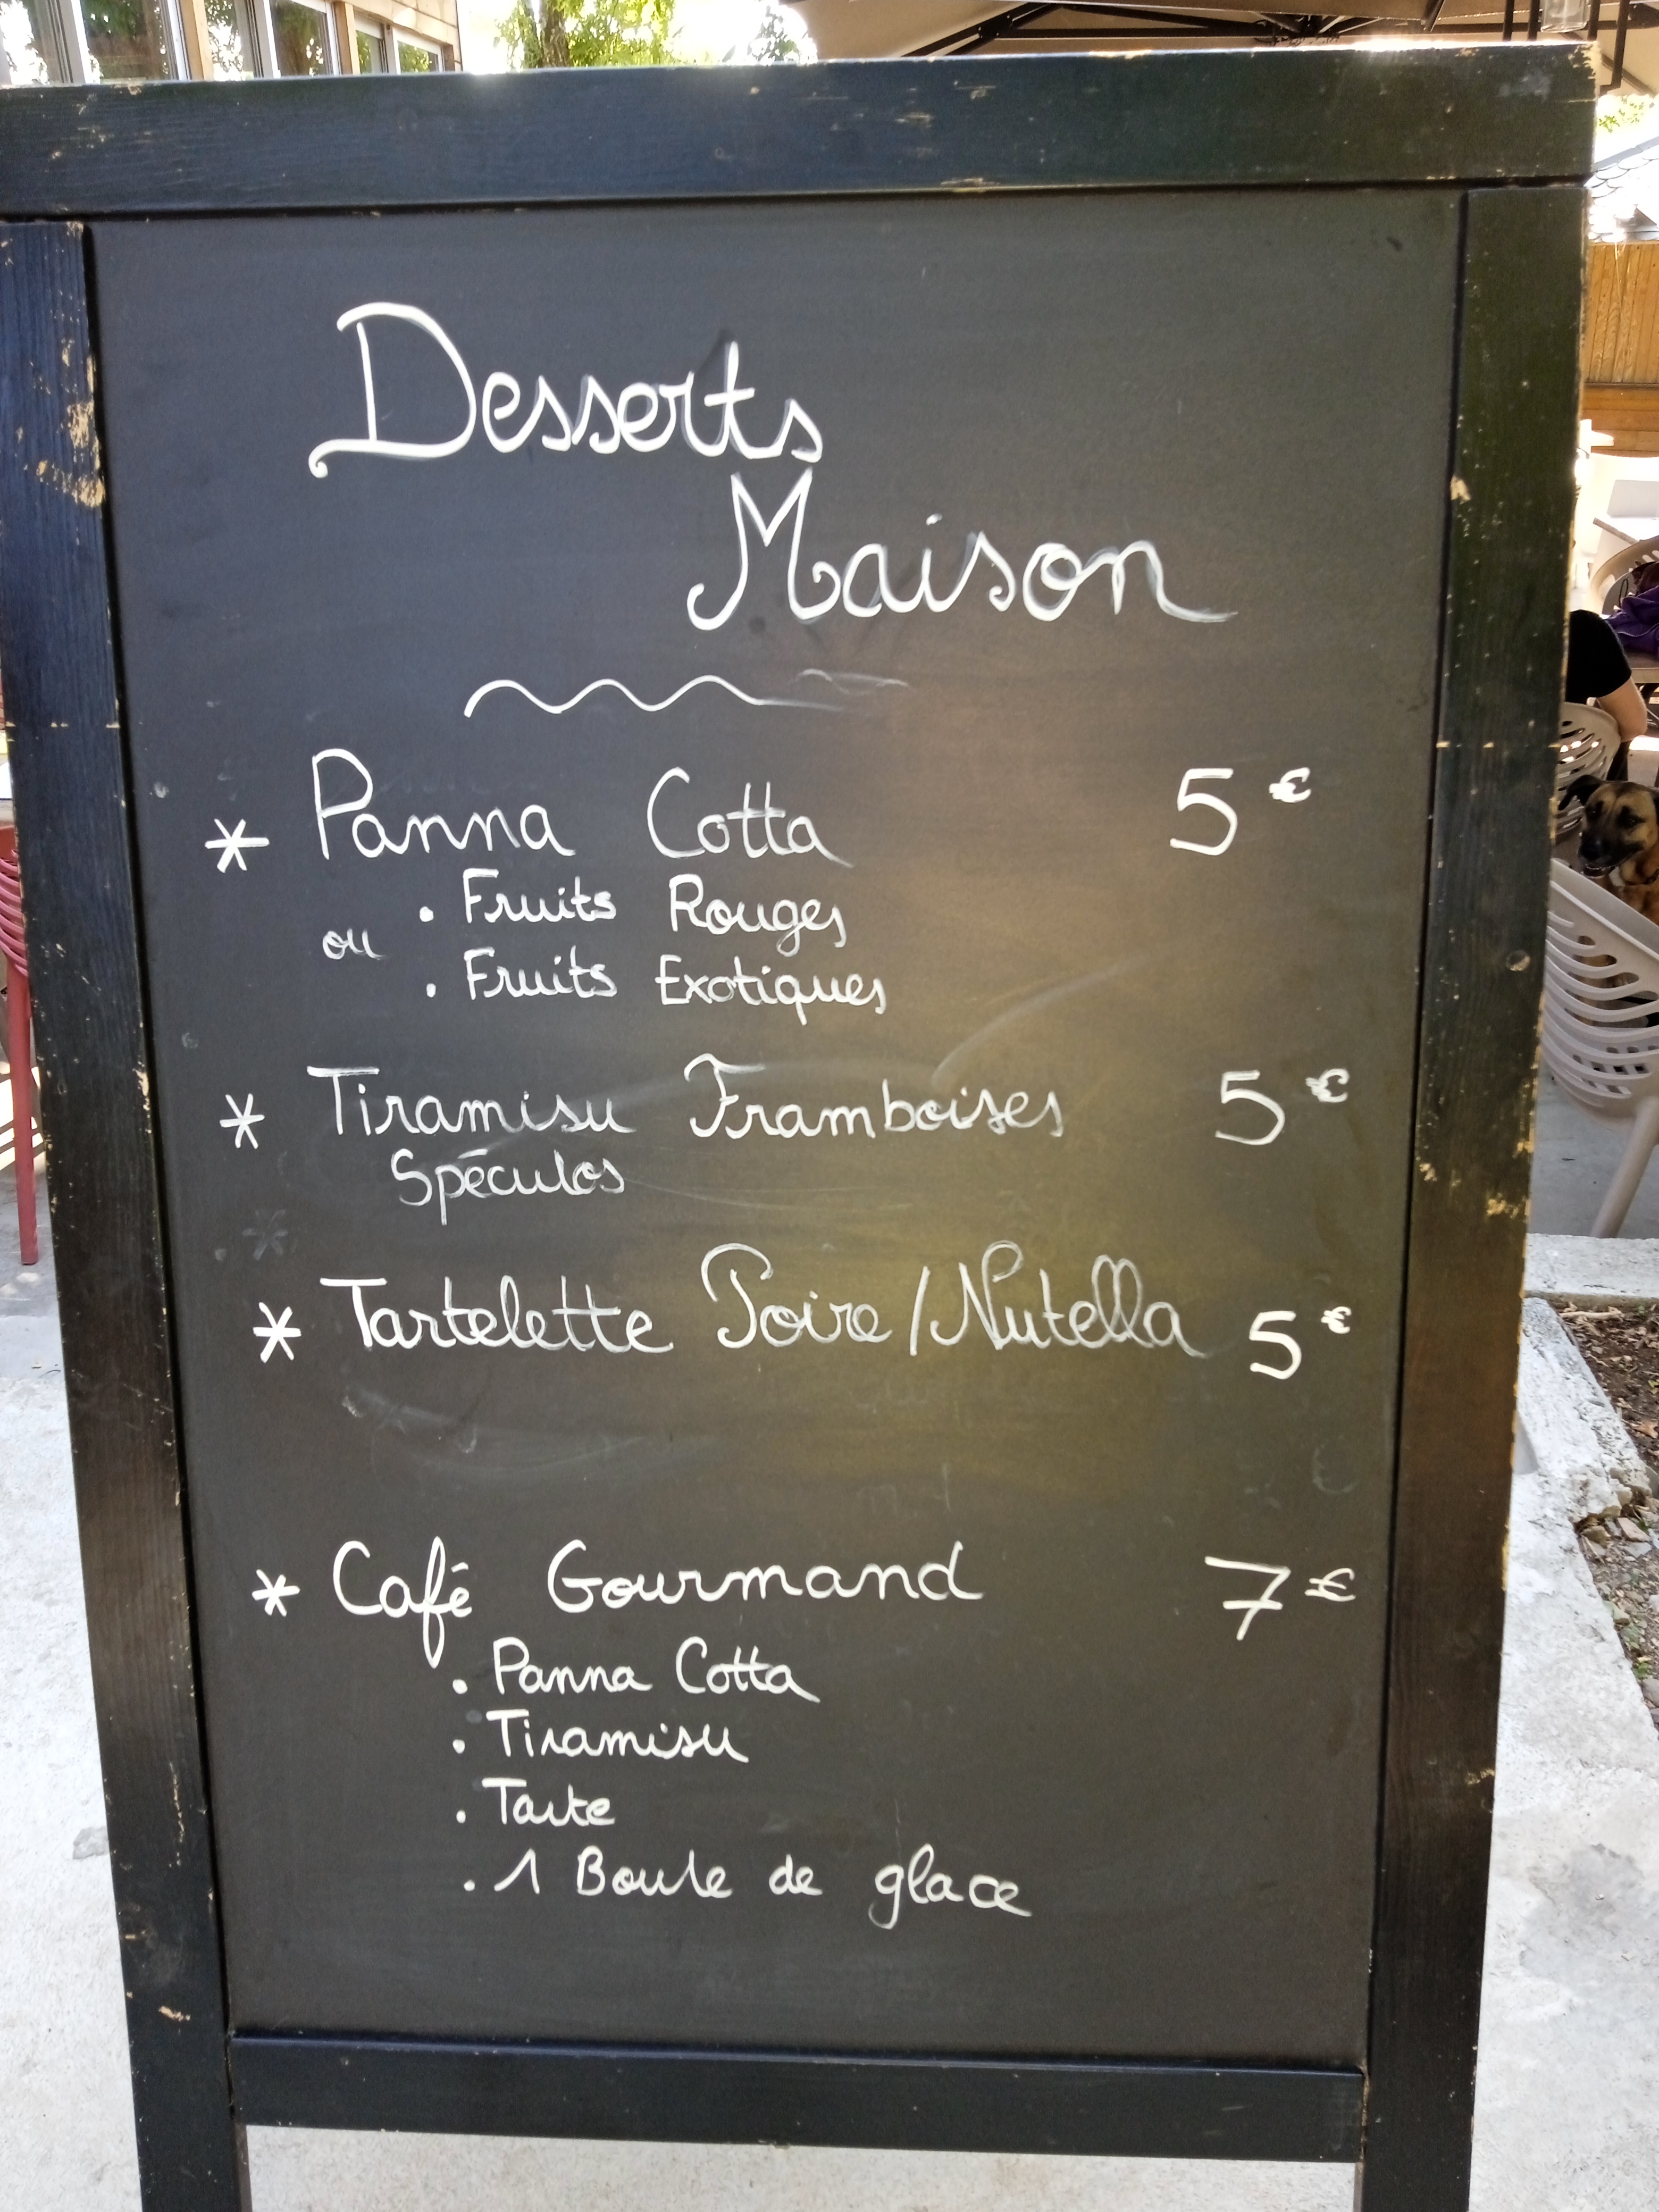 Desserts
Maison
* Panna Cotta 5€
. Fruits Rouges
ou
. Fruits Exotiques
* Tiramisu Framboises 5€
Spéculos
* Tartelette Poire/Nutella 5€
* Café Gourmand 7€
. Panna Cotta
. Tiramisu
. Tarte
. 1 Boule de glace